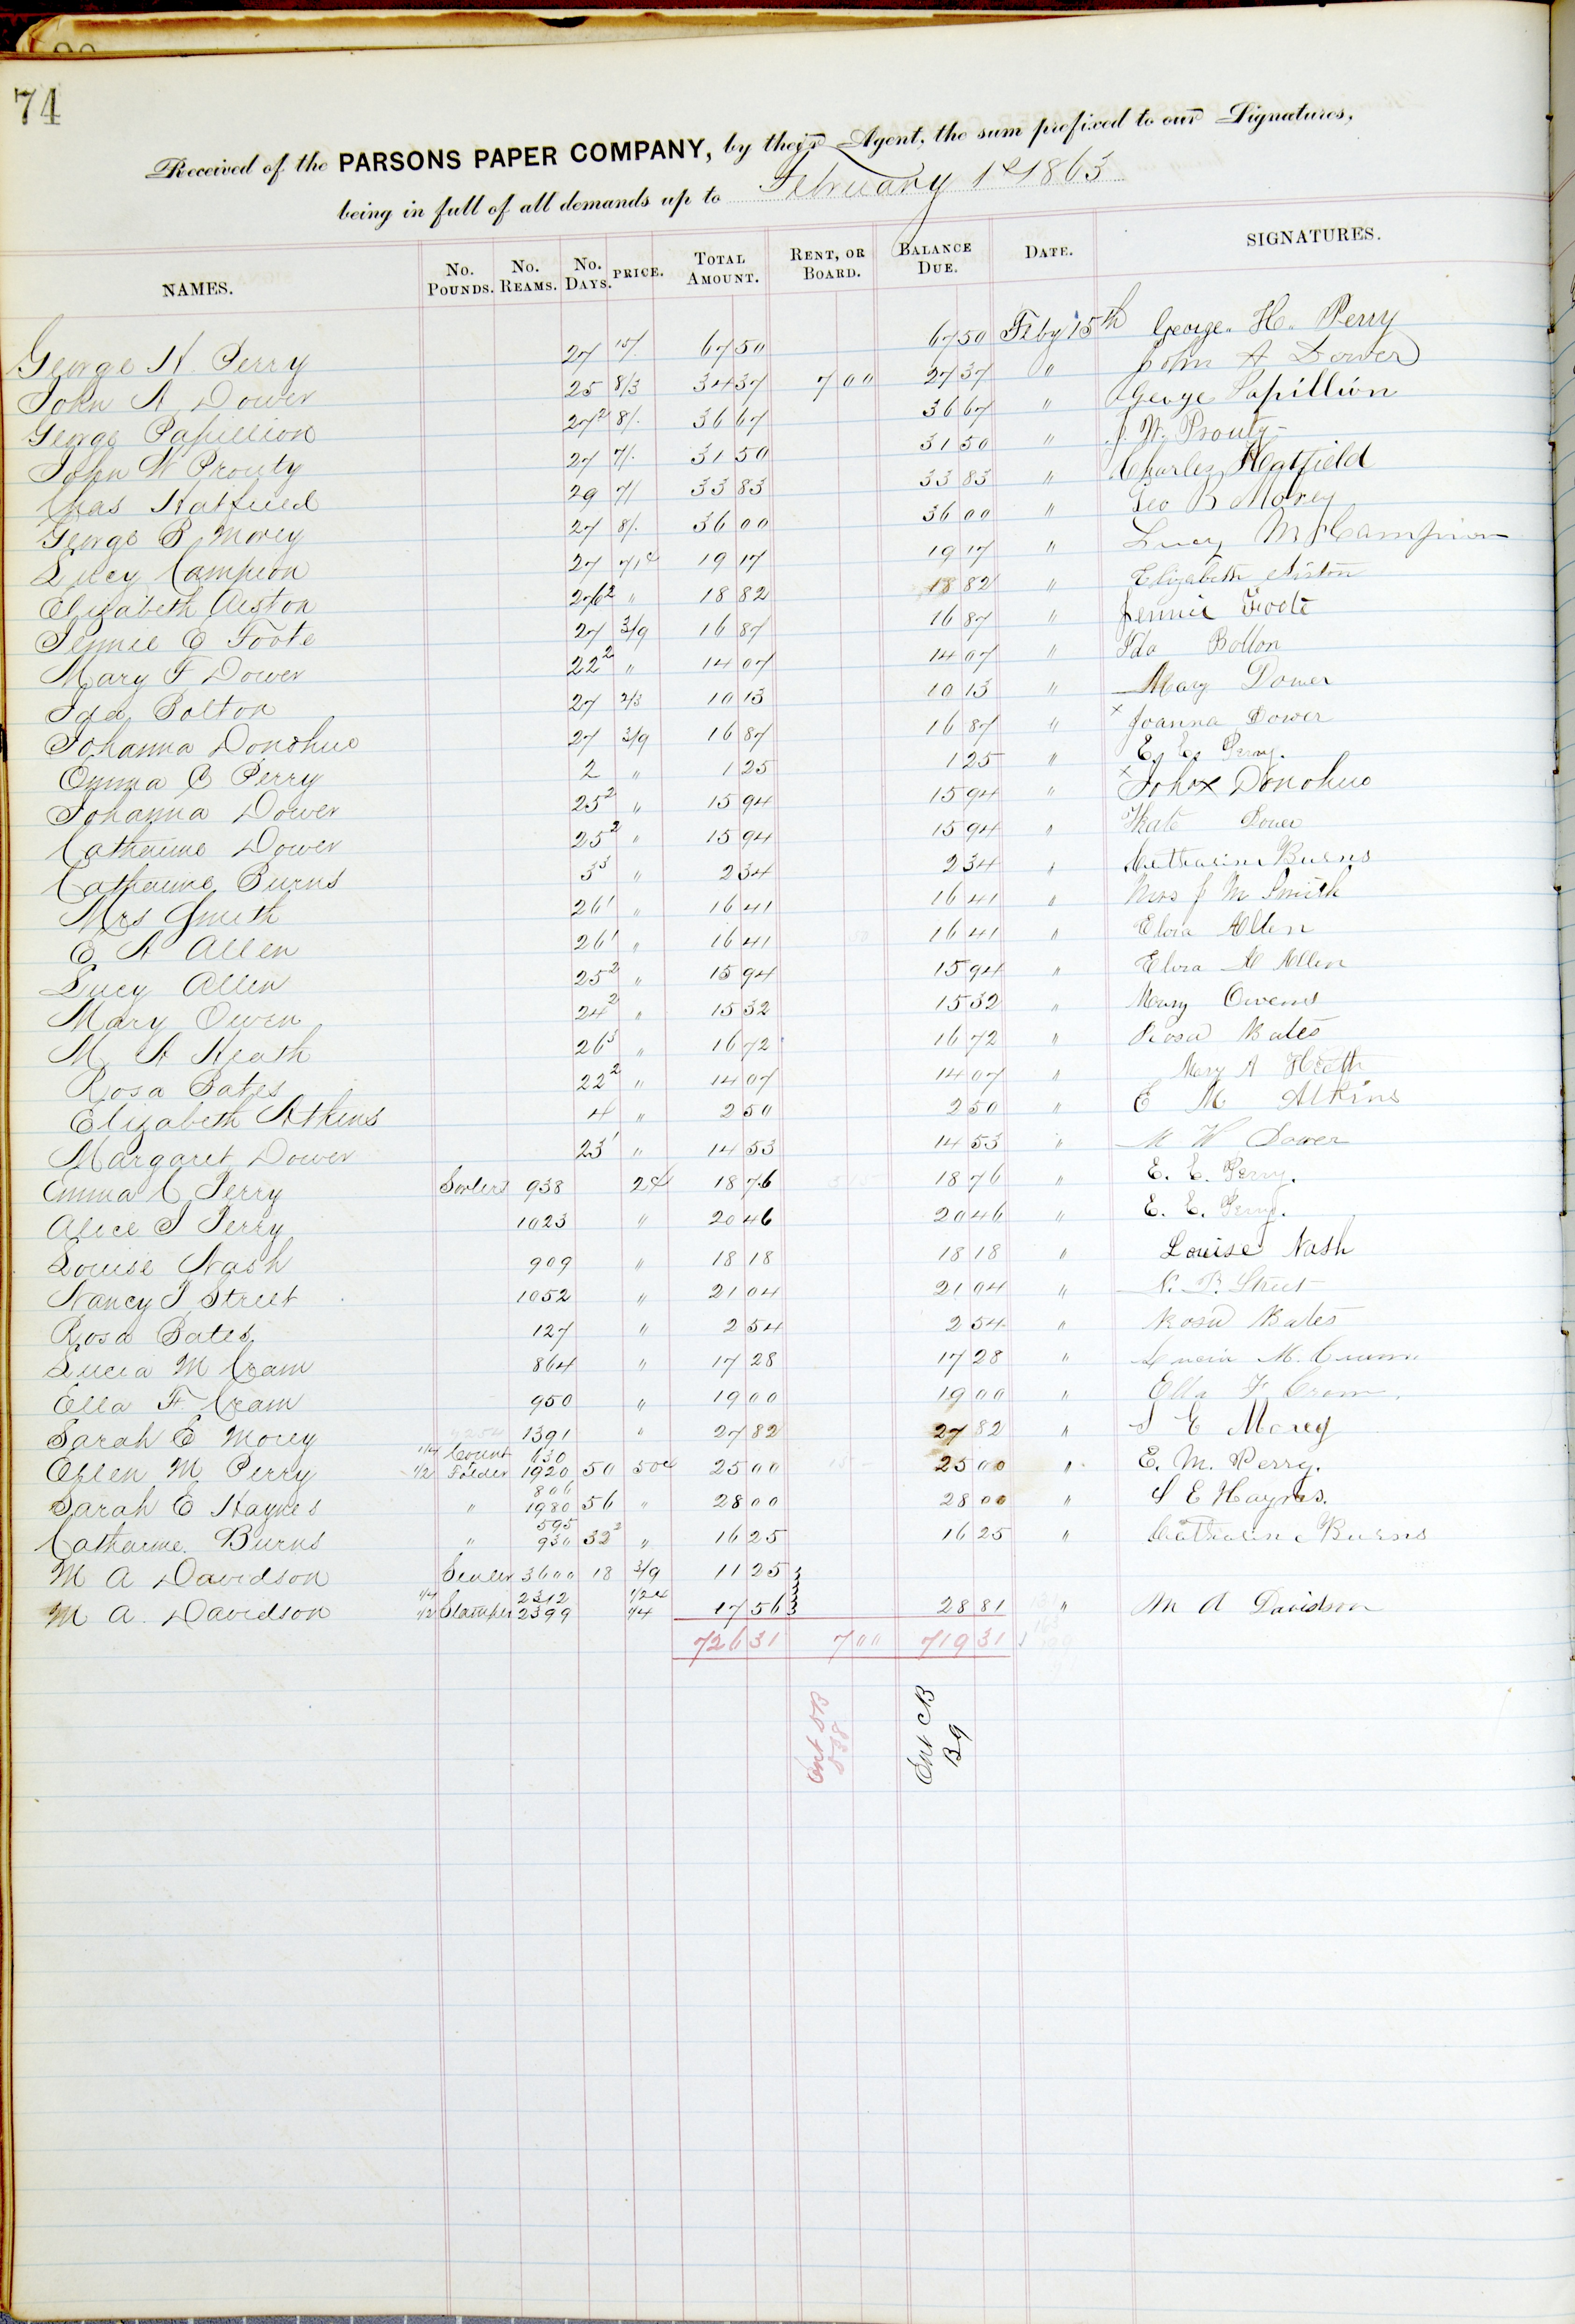 74
Received of the PARSONS PAPER COMPANY, by their Agent, the sum prefixed to our Signatures,
being in full of all demands up to February 1st 1863
NAMES. No. Pounds. No. Reams. No. Days. PRICE. Total Amount. Rent, or Board. Balance Due. Date. SIGNATURES.
George H Perry 27 15/. 67 50 67 50 Feby 15th George. H. Perry
John A Dower 25 8/3 34 37 7 00 27 37 " John A Dower
George Papillion 27 2 8/. 36 67 36 67 " George Papillion
John W Prouty 27 7/. 31 50 31 50 " J. W. Prouty
Chas Hatfield 29 7/ 33 83 33 83 " Charles Hatfield
George B Morey 27 8/. 36 00 36 00 " Geo B Morey
Lucy Campion 27 71c 19 17 19 17 " Lucy M Campion
Elizabeth Aiston 26 2 " 18 82 18 82 " Elizabeth Aiston
Jennie E Foote 27 3/9 16 87 16 87 " Jennie Foote
Mary F Dower 22 2 " 14 07 14 07 " Ida Bolton
Ida Bolton 27 2/3 10 13 10 13 " Mary Dower
Johanna Donohue 27 3/9 16 87 16 87 " x Joanna Dower
Emma C Perry 2 " 1 25 1 25 " E. E. Perry.
Johanna Dower 25 2 " 15 94 15 94 " x Joh x Donohue
Catharine Dower 25 2 " 15 94 15 94 " Kate Dower
Catharine Burns 3 3 " 2 34 2 34 " Catharine Burns
Mrs Smith 26 1 " 16 41 16 41 " Mrs J M Smith
E A Allen 26 1 " 16 41 16 41 " Elvia Allen
Lucy Allen 25 2 " 15 94 15 94 " Elvia A Allen
Mary Owen 24 2 " 15 32 15 32 " Mary Owens
M A Heath 26 3 " 16 72 16 72 " Rosa Bates
Rosa Bates 22 2 " 14 07 14 07 " Mary A Heath
Elizabeth Atkins 4 " 2 50 2 50 " E M Atkins
Margaret Dower 23 1 " 14 53 14 53 " M W Dower
Emma C Perry Sorters 938 2c 18 76 18 76 " E. E. Perry.
Alice J Perry 1023 " 20 46 20 46 " E. E. Perry.
Louise Nash 909 " 18 18 18 18 " Louise Nash
Nancy P Street 1052 " 21 04 21 04 " N. P. Street
Rosa Bates 127 " 2 54 2 54 " Rosa Bates
Lucia M Cram 864 " 17 28 17 28 " Lucia M. Cram
Ella F. Cram 950 " 19 00 19 00 " Ella F Cram.
Sarah E Morey 1391 " 27 82 27 82 " S E Morey
Ellen M Perry 1/4 Count 630 1/2 Folder 1920 50 50c 25 00 25 00 " E. M. Perry.
Sarah E Haynes " 806 1980 56 " 28 00 28 00 " S E Haynes.
Catharine Burns " 595 930 32 2 " 16 25 16 25 " Catharine Burns
M A Davidson Sealer 3600 18 3/9 11 25
M A Davidson 1/4 1/2 Stamper 2312 2399 1/2c 1/4 17 56 28 81 " M A Davidson
726 31 7 00 719 31
Ent CB
B9